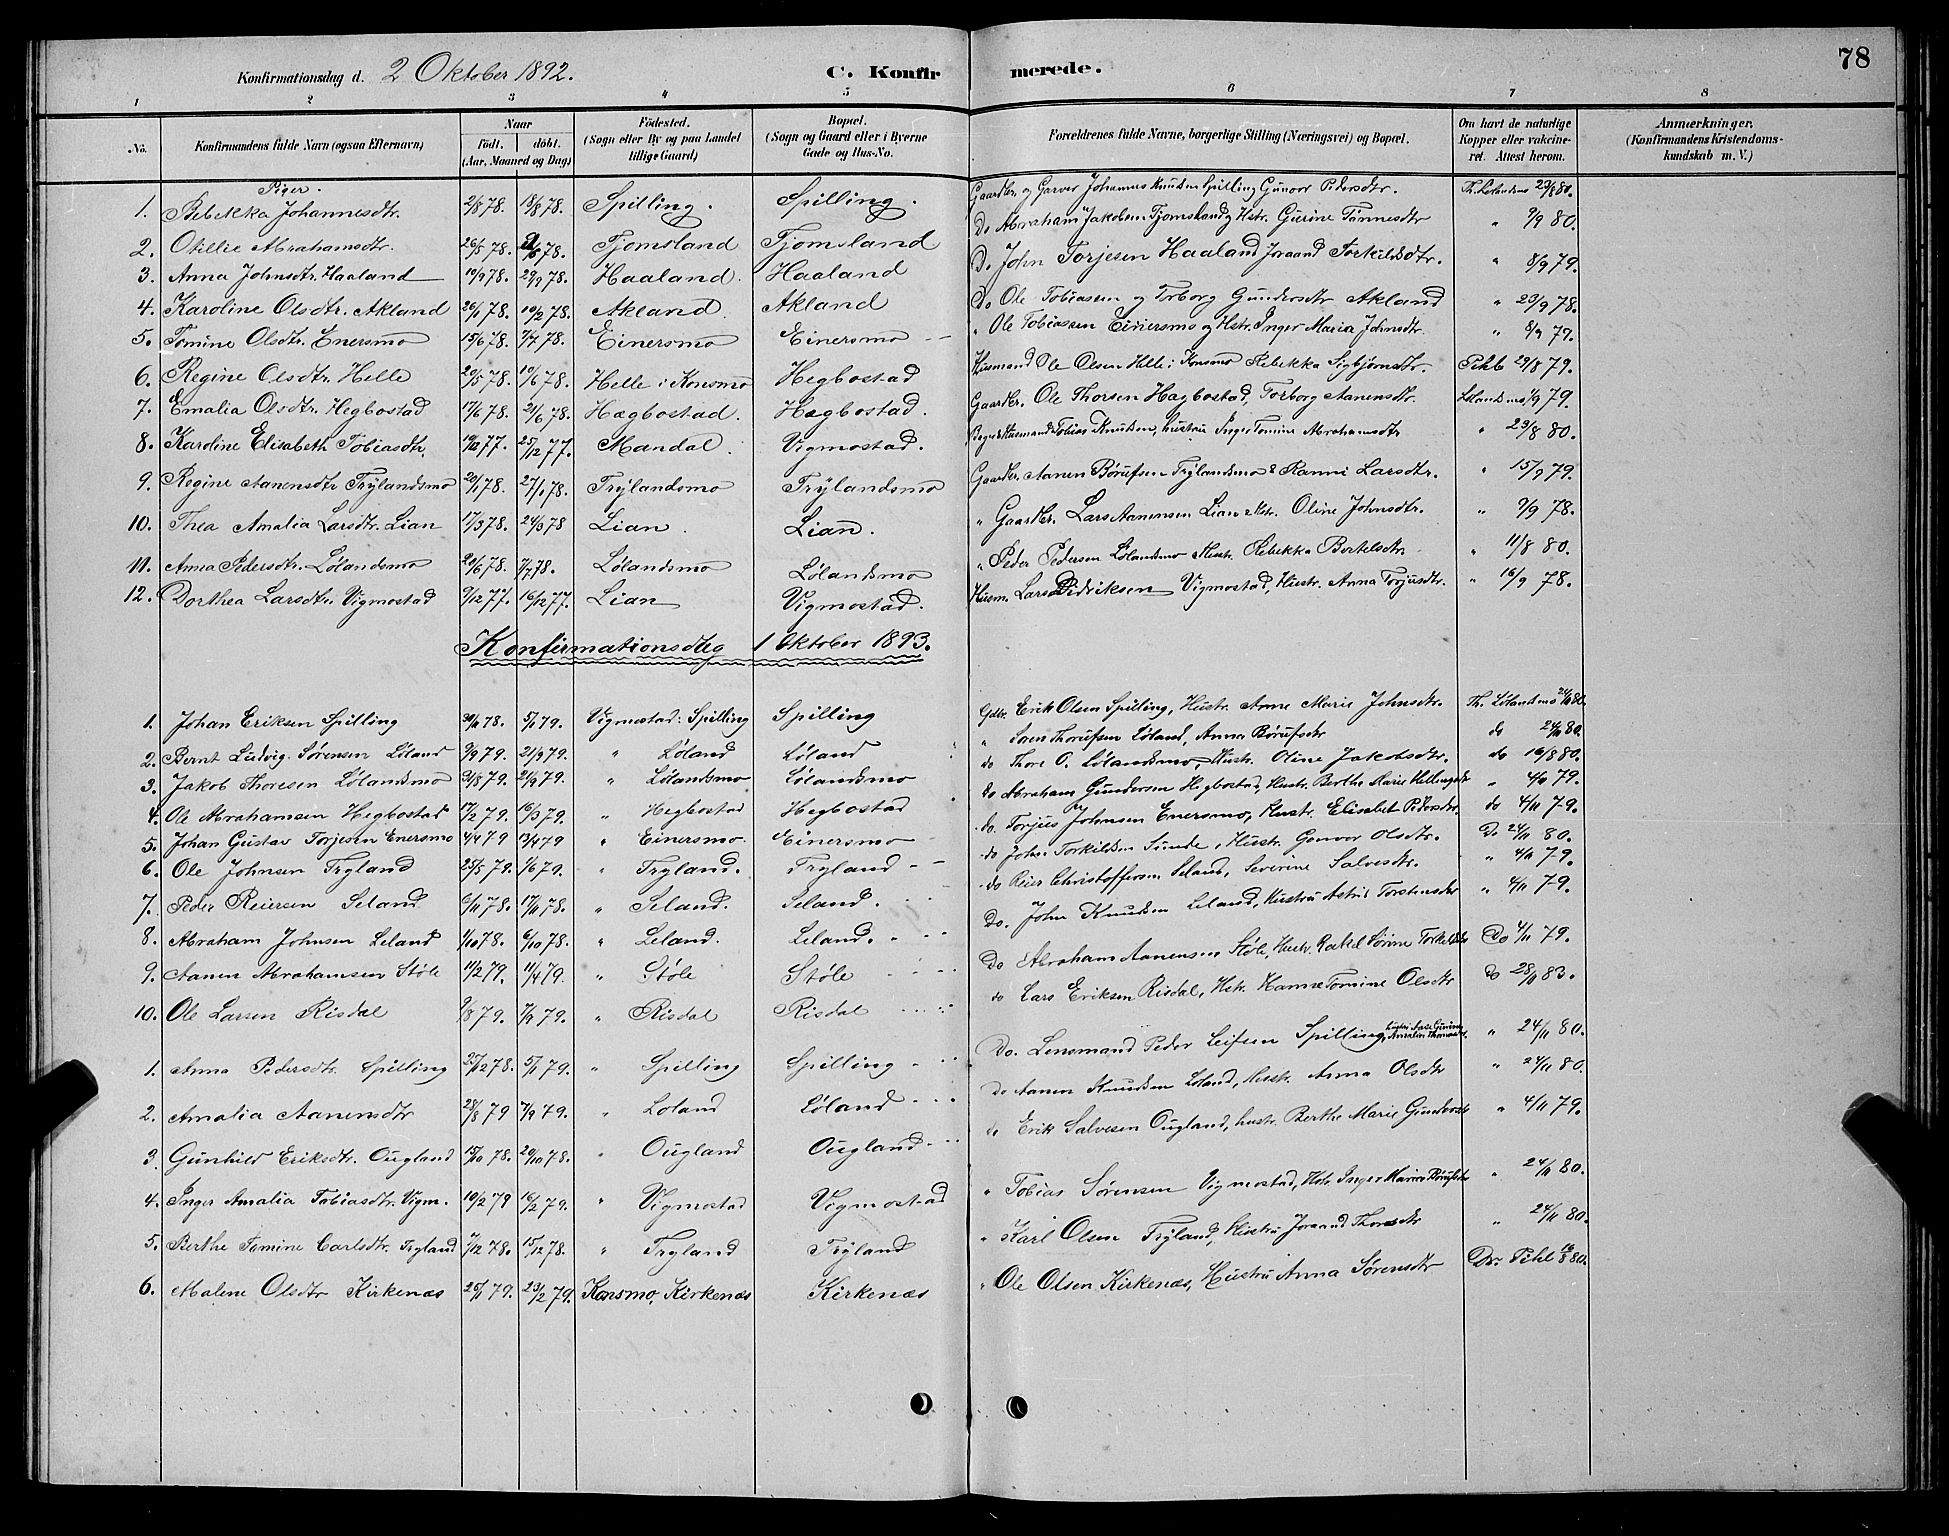 78
Konfirmationsdag d. 2 Oktober 1892. C. Konfirmerede.
1 2 3 4 5 6 7 8
No. Konfirmandens fulde Navn (ogsaa Efternavn) Naar födt. döbt. (Aar, Maaned og Dag) Födested. (Sogn eller By og paa Landet tillige Gaard) Bopæl. (Sogn og Gaard eller i Byerne Gade og Hus-No. Forældrenes fulde Navne, borgerlige Stilling (Næringsvei) og Bopæl. Om havt de naturlige Kopper eller vakcineret. Attest herom. Anmærkninger. (Konfirmandens Kristendomskundskab m. V.)
Piger.
1. Rebekka Johannesdtr. 2/8 78. 18/8 78. Spilling. Spilling. Gaardbr. og Garver Johannes Knudsen Spilling Gunvor Pedersdtr. Th. Lølandsmo 23/8 80.
2. Otillie Abrahamsdtr. 26/5 78. /6 78. Tjomsland Tjomsland Do Abraham Jakobsen Tjomsland og Hstr. Gurine Tønnesdtr " 9/9 80.
3. Anna Johnsdtr. Haaland 19/9 78. 29/9 78. Haaland. Haaland D. John Torjesen Haaland Joraand Torkildsdtr. " 8/9 79.
4. Karoline Olsdtr. Akland 26/1 78. 10/2 78. Akland. Akland Do Ole Tobiassen og Torborg Gundersdtr Akland " 23/9 78.
5. Tomine Olsdtr. Enersmo 15/6 78. 7/7 78. Einersmo Einersmo " Ole Tobiassen Einersmo og Hstr. Inger Maria Johnsdtr. " 8/9 79.
6. Regine Olsdtr. Helle 20/5 78. 10/6 78. Helle i Konsmo Hegbostad Husmand Ole Olsen Helle i Konsmo Rebekka Sigbjørnsdtr. Pihl 29/8 79.
7. Emalia Olsdtr. Hegbostad 17/6 78. 21/6 78. Hægbostad. Hægbostad. Gaardbr. Ole Thorsen Hagbostad, Torborg Aanensdtr. Lølandsmo /9 79.
8. Karoline Elisabeth Tobiasdtr. 19/10 77. 25/12 77. Mandal. Vigmostad. Husmand Tobias Knudsen, hustru Inger Tomine Abrahamsdtr " 23/8 80.
9. Regine Aanensdtr Trylandsmo 20/1 78. 27/1 78. Trÿlandsmo Trÿlandsmo Gaardbr. Aanen Børufsen Trÿlandsmo & Ranni Larsdtr. " 15/9 79.
10. Thea Amalia Larsdtr. Lian 17/3 78. 24/3 78 Lian. Lian. " Gaardbr. Lars Aanensen Lian & Hstr. Oline Johnsdtr. " 9/9 78.
11. Anna Pedersdtr. Lølandsmo 20/6 78. 7/7 78. Lølandsmo Lølandsmo " Peder Pedersen Lølandsmo Hustr. Rebekka Bertelsdtr " 11/8 80.
12. Dorthea Larsdtr. Vigmostad 9/12 77. 16/12 77. Lian Vigmostad. Husm. Lars Didriksen Vigmostad, Hustr. Anna Torjusdtr. " 16/9 78.
Konfirmationsdag 1 Oktober 1893.
1. Johan Eriksen Spilling 30/11 78. 5/1 79. Vigmostad: Spilling Spilling Gdbr. Erik Olsen Spilling, Hustr. Anne Marie Johnsdtr. Th. Lølandsmo 24/11 80.
2. Bernt Ludvig Sørensen Løland 9/9 79. 21/9 79. " Løland Løland " Søren Thorufsen Løland, Anna Børufsdtr do 24/11 80.
3. Jakob Thoresen Lølandsmo 31/8 79. 21/9 79. " Lølandsmo Lølandsmo do Thore O. Lølandsmo, Hustr. Oline Jakobsdtr. do 16/8 80.
4. Ole Abrahamsen Hegbostad 17/2 79. 16/3 79. " Hegbostad Hegbostad do Abraham Gundersen Hegbostad, Hustr. Berthe Marie " 4/11 79.
5. Johan Gustav Torjesen Enersmo 4/4 79 13/4 79 " Einersmo. Einersmo do. Torjus Johnsen Enersmo, Hustr. Elisabet Pedersdtr. do 4/11 79.
6. Ole Johnsen Tryland 25/5 79. 1/6 79. " Tryland. Tryland do John Torkildsen Sunde, Hustr. Gunvor Olsdtr. Do 24/11 80.
7. Peder Reiersen Seland 6/11 78. 17/11 78. " Seland. Seland. do Reier Christoffersen Seland, Severine Salvesdtr. " 4/11 79.
8. Abraham Johnsen Leland 1/10 78. 6/10 78. " Leland. Leland. Do. John Knudsen Leland, Hustru Astri Torstensdtr " 4/11 79.
9. Aanen Abrahamsen Støle 11/2 79. 11/4 79. " Støle Støle Do Abraham Aanensen Støle, Hustr. Rakel Sørine Torkildsdtr Do 4/11 79.
10. Ole Larsen Risdal 9/8 79. 7/9 79. " Risdal Risdal do Lars Eriksen Risdal, Hstr. Hanne Tomine Olsdtr do 28/11 83.
1. Anna Pedersdtr. Spilling 25/12 78. 5/1 79. " Spilling Spilling Do. Lensmand Peder Leifsen Spilling, " 24/11 80.
2. Amalia Aanensdtr 28/8 79 7/9 79. " Løland Løland do Aanen Knudsen Løland, Hustr. Anna Olsdtr " 24/11 80.
3. Gunhild Eriksdtr. Ougland 15/10 78. 20/10 78. " Ougland Ougland do Erik Salvesen Ougland, hustr. Berthe Marie Gundersdtr " 4/11 79.
4. Inger Amalia Tobiasdtr. Vigm. 10/2 79 16/2 79. " Vigmostad Vigmostad " Tobias Sørensen Vigmostad, Hstr. Inger Marie Børufsdtr " 24/11 80.
5. Berthe Tomine Carlsdtr. Tryland 7/12 78. 15/12 78. " Tryland Trÿland " Karl Olsen Trÿland, Hustru Joraand Thoresdtr " 24/11 80.
6. Malene Olsdtr Kirkenæs 25/1 79. 23/2 79. Konsmo, Kirkenæs Kirkenæs " Ole Olsen Kirkenæs, Hustru Anna Sørensdtr Dr. Pihl 16/8 80.